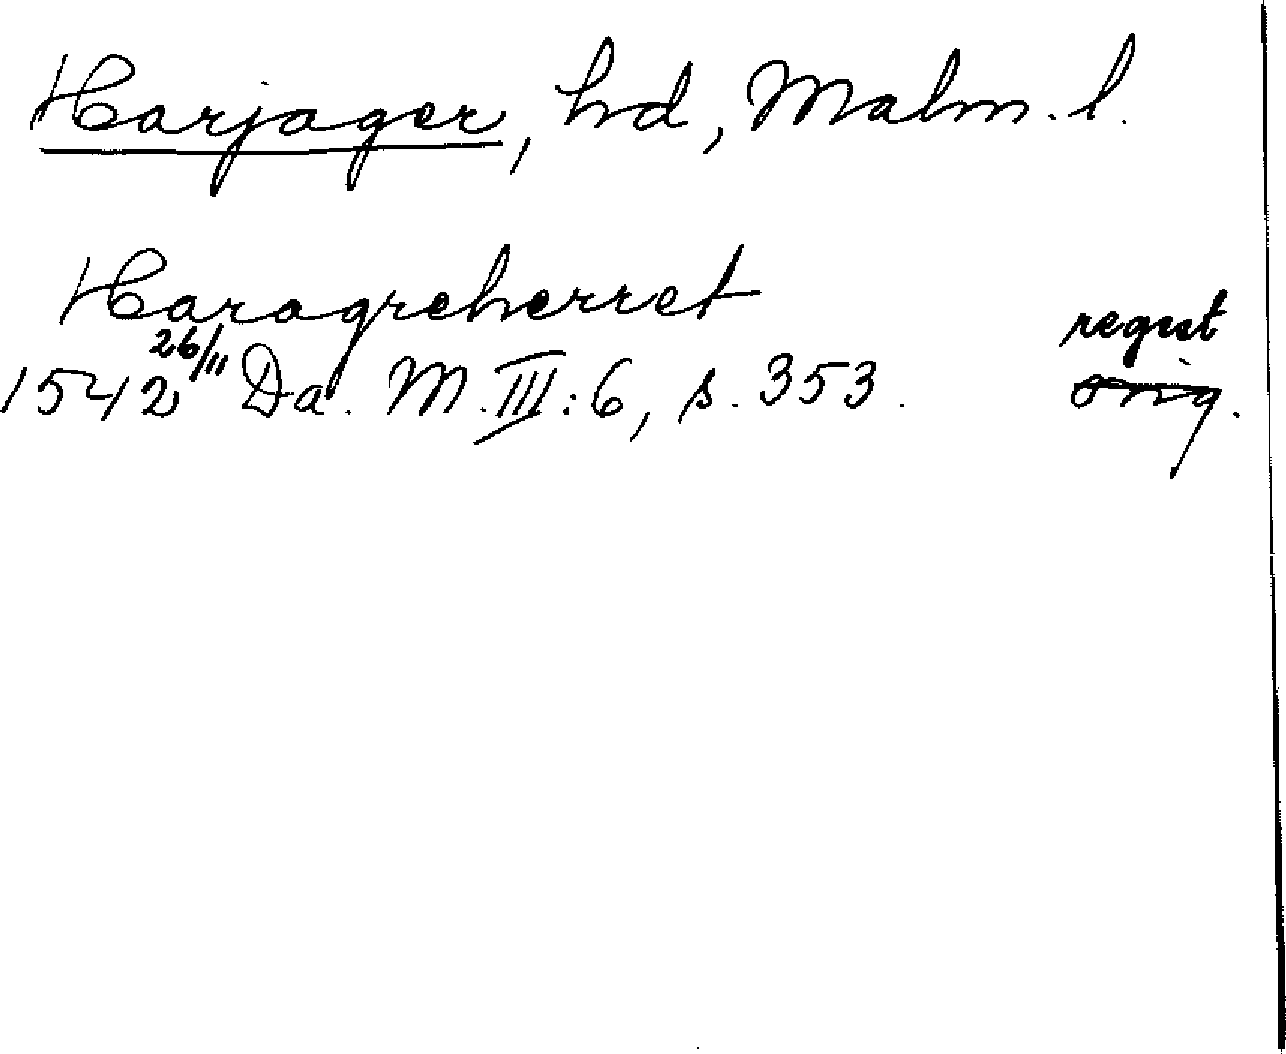 Harjager, hd, Malm. l.
Haragreherret
regist
1542 26/11 Da. M. III:6, s. 353. orig.